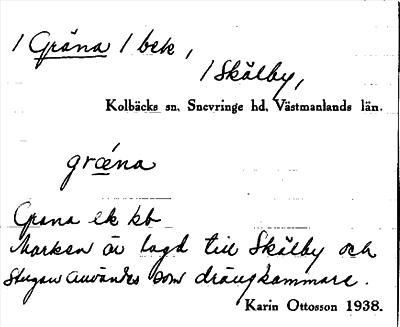 / Gräna / bek,
/ Skälby,
Kolbäcks sn. Snevringe hd. Västmanlands län.
grǽna
Grana ek kb
Marken är lagd till Skälby och
Stugan användes som drängkammare.
Karin Ottosson 1938.